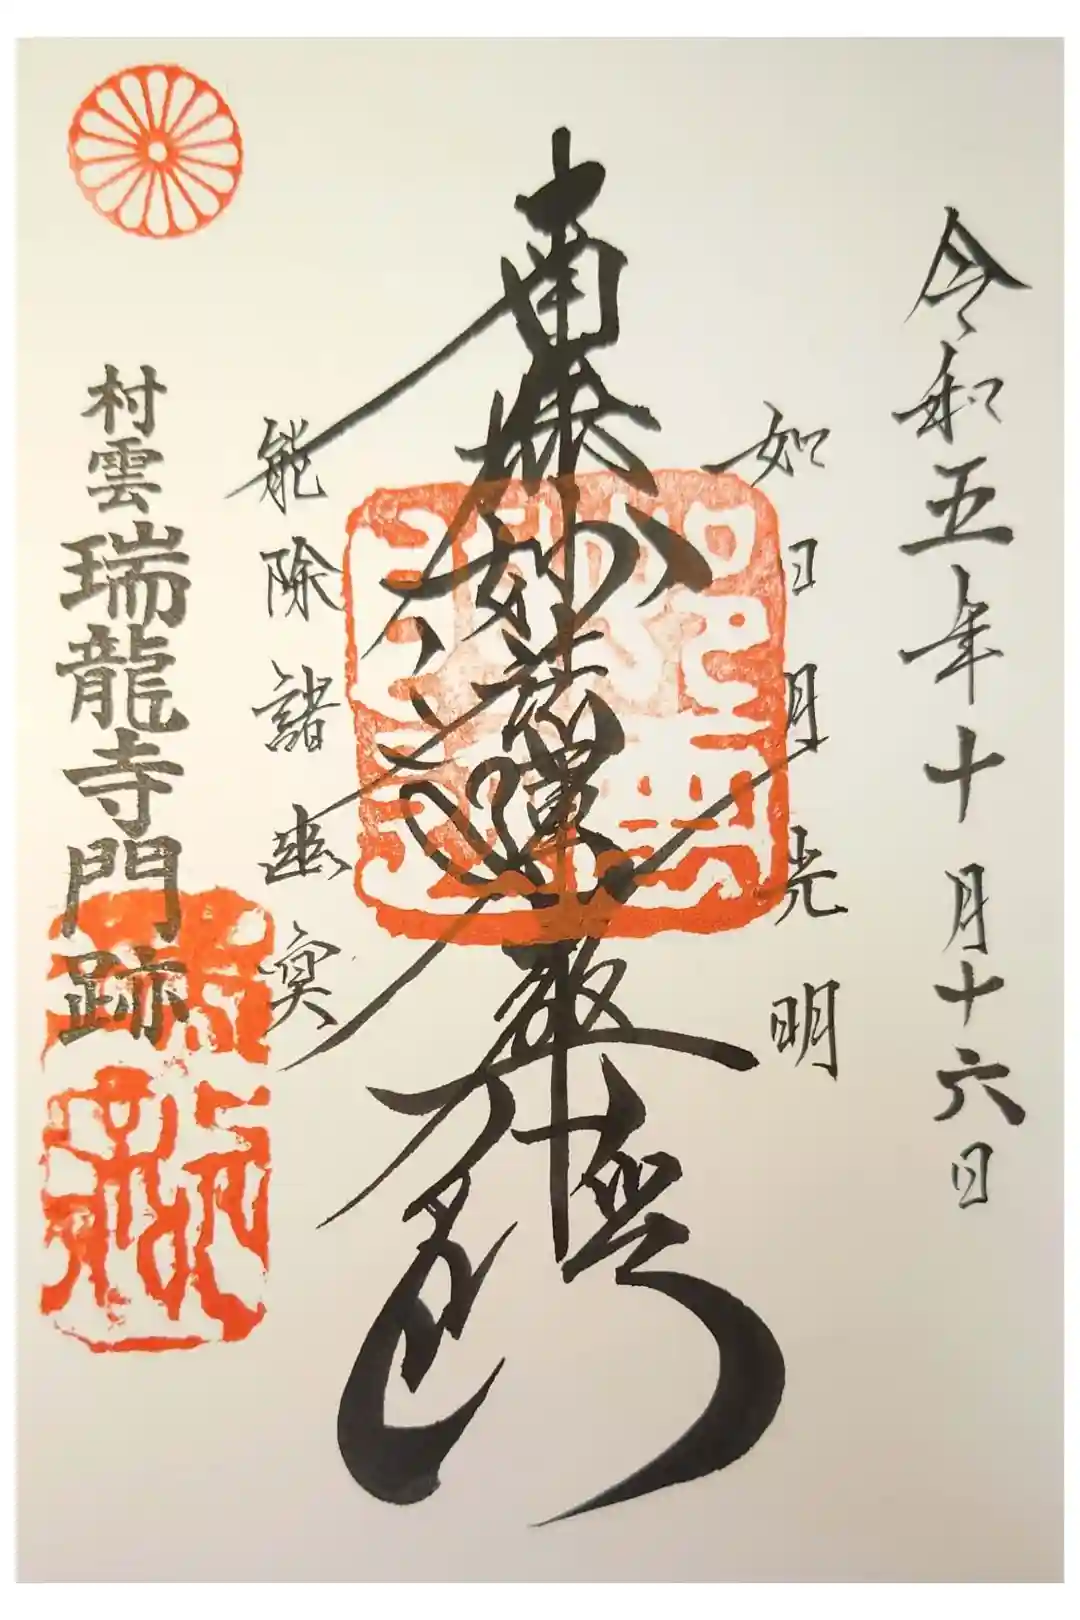 令和五年十月十六日
如日月光明
南無妙法蓮華経
能除諸幽冥
村雲瑞龍寺門跡